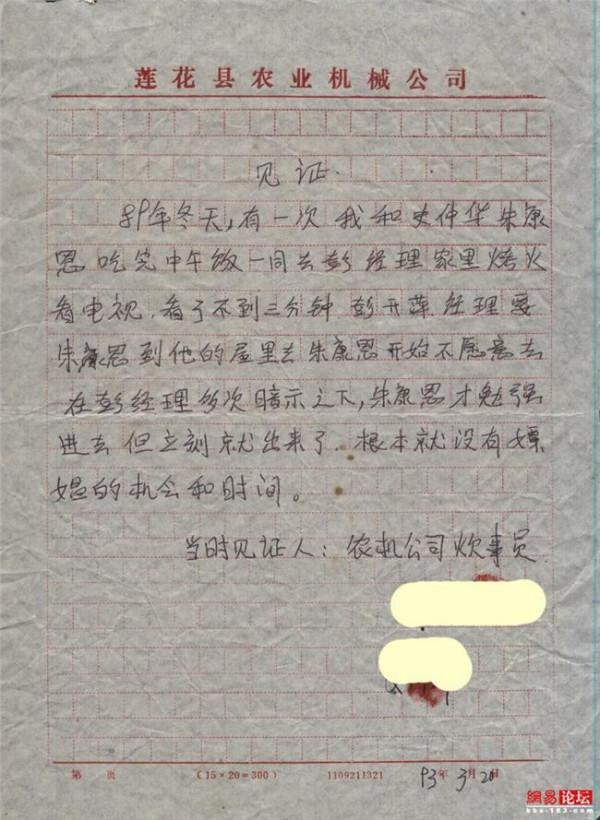 莲花县农业机械公司
见证.
89年冬天,有一次 我和史仲华朱康
恩吃完中午饭一同去彭经理家里烤火
看电视.看了不到三分钟 彭开萍经理要
朱康恩到他的屋里去朱康恩开始不愿意去
在彭经理多次暗示之下,朱康恩才勉强
进去但立刻就出来了.根本就没有嫖
娼的机会和时间。
当时见证人:农机公司炊事员
第 页 (15×20=300) 1109211321 93年3月20日
网易论坛
bbs.163.com